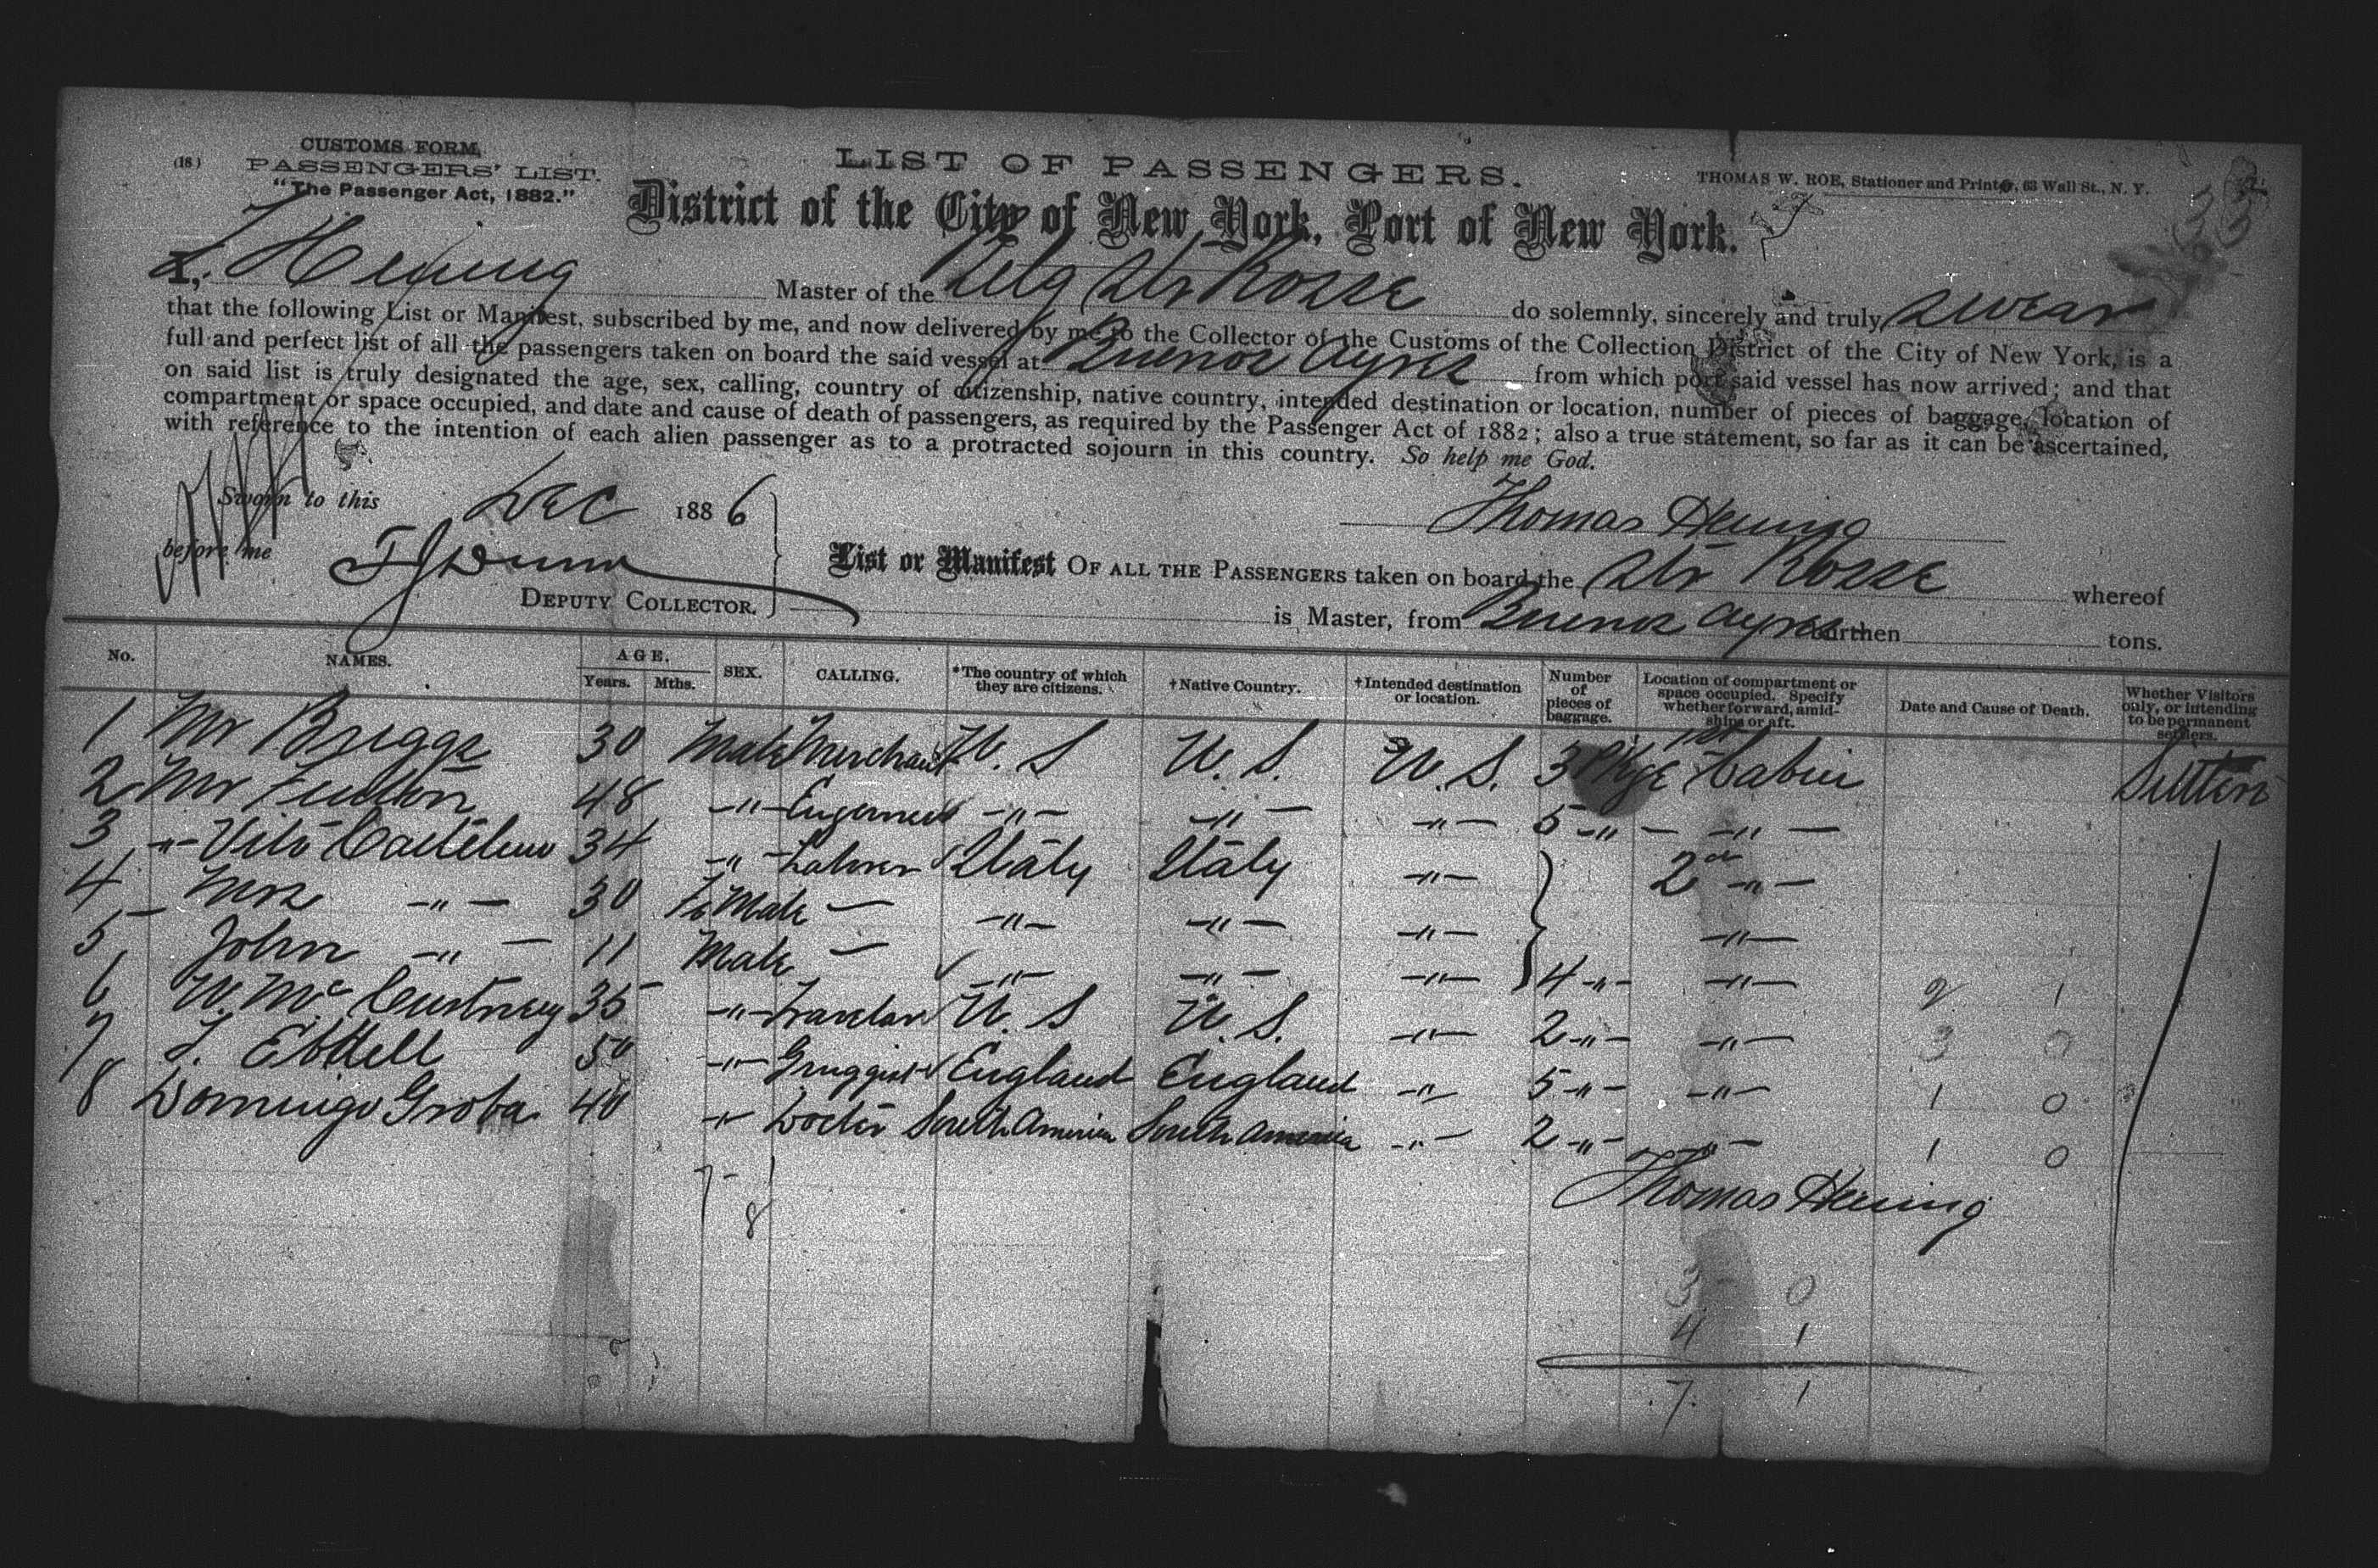 (18)
CUSTOMS FORM,
PASSENGERS' LIST.
"The Passenger Act, 1882."
LIST OF PASSENGERS.
THOMAS W. ROE, Stationer and Printer, 63 Wall St., N. Y.
District of the City of New York, Port of New York.
I, T Hening Master of the Belg Str Rosse do solemnly, sincerely and truly swear
that the following List or Manifest, subscribed by me, and now delivered by me to the Collector of the Customs of the Collection District of the City of New York, is a
full and perfect list of all the passengers taken on board the said vessel at Buenos Ayres from which port said vessel has now arrived; and that
on said list is truly designated the age, sex, calling, country of citizenship, native country, intended destination or location, number of pieces of baggage, location of
compartment or space occupied, and date and cause of death of passengers, as required by the Passenger Act of 1882; also a true statement, so far as it can be ascertained,
with reference to the intention of each alien passenger as to a protracted sojourn in this country. So help me God.
Sworn to this Dec 1886
Thomas Hening
before me T J Dunn
DEPUTY COLLECTOR.
List or Manifest OF ALL THE PASSENGERS taken on board the Str Rosse whereof
is Master, from Buenos Ayres burthen tons.
No. NAMES. AGE. Years. Mths. SEX. CALLING. *The country of which they are citizens. †Native Country. †Intended destination or location. Number of pieces of baggage. Location of compartment or space occupied. Specify whether forward, amidships or aft. Date and Cause of Death. Whether Visitors only, or intending to be permanent settlers.
1 Mr Briggs 30 Male Merchant U. S U. S. U. S. 3 Pkge 1st Cabin
2 Mr Fulton 48 -"- -"- -"- -"- 5 -"- -"-
3 -"- Vito 34 -"- Laborer Italy Italy -"- 2nd -"-
4 Mrs -"- 30 Fe Male - -"- -"- -"- -"-
5 John -"- 11 Male - -"- -"- -"- 4 -"- -"- 2 1
6 W. Mc 35 -"- U. S U. S. -"- 2 -"- -"- 3 0
7 50 -"- England England -"- 5 -"- -"- 1 0
8 Domingo Groba 40 -"- Doctor South America South America -"- 2 -"- -"- 1 0
7 1
8
Thomas Hening
3 0
4 1
7 1